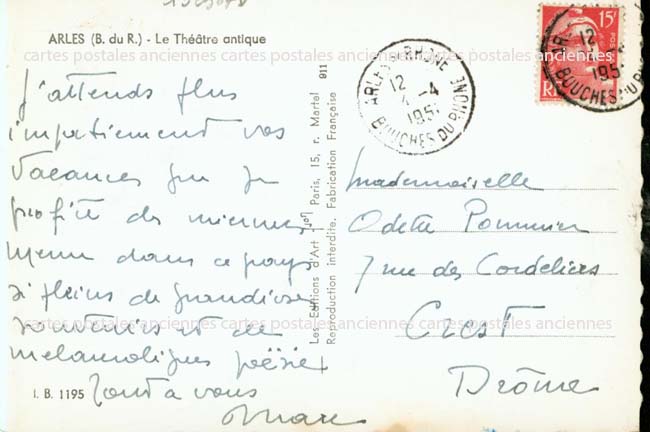 ARLES (B. du R.) - Le Théâtre antique
cartes postales anciennes cartes postales anciennes cartes postales anciennes
J'attends plus
impatiemment vos
vacances que je
profite des miennes
même dans ce pays
si pleins de grandioses
souvenirs et de
mélancolique poësie
Tout à vous
Marc
I. B. 1195
Les Editions d'Art Paris, 15, r. Martel 911
Reproduction interdite. Fabrication Française
ARLES S RHONE
12
4 - 4
195
BOUCHES DU RHONE
15F
RF
12
195
BOUCHES DU RHONE
Mademoiselle
Odette Pommier
7 rue des Cordeliers
Crest
Drôme
cartes postales anciennes cartes postales anciennes cartes postales anciennes